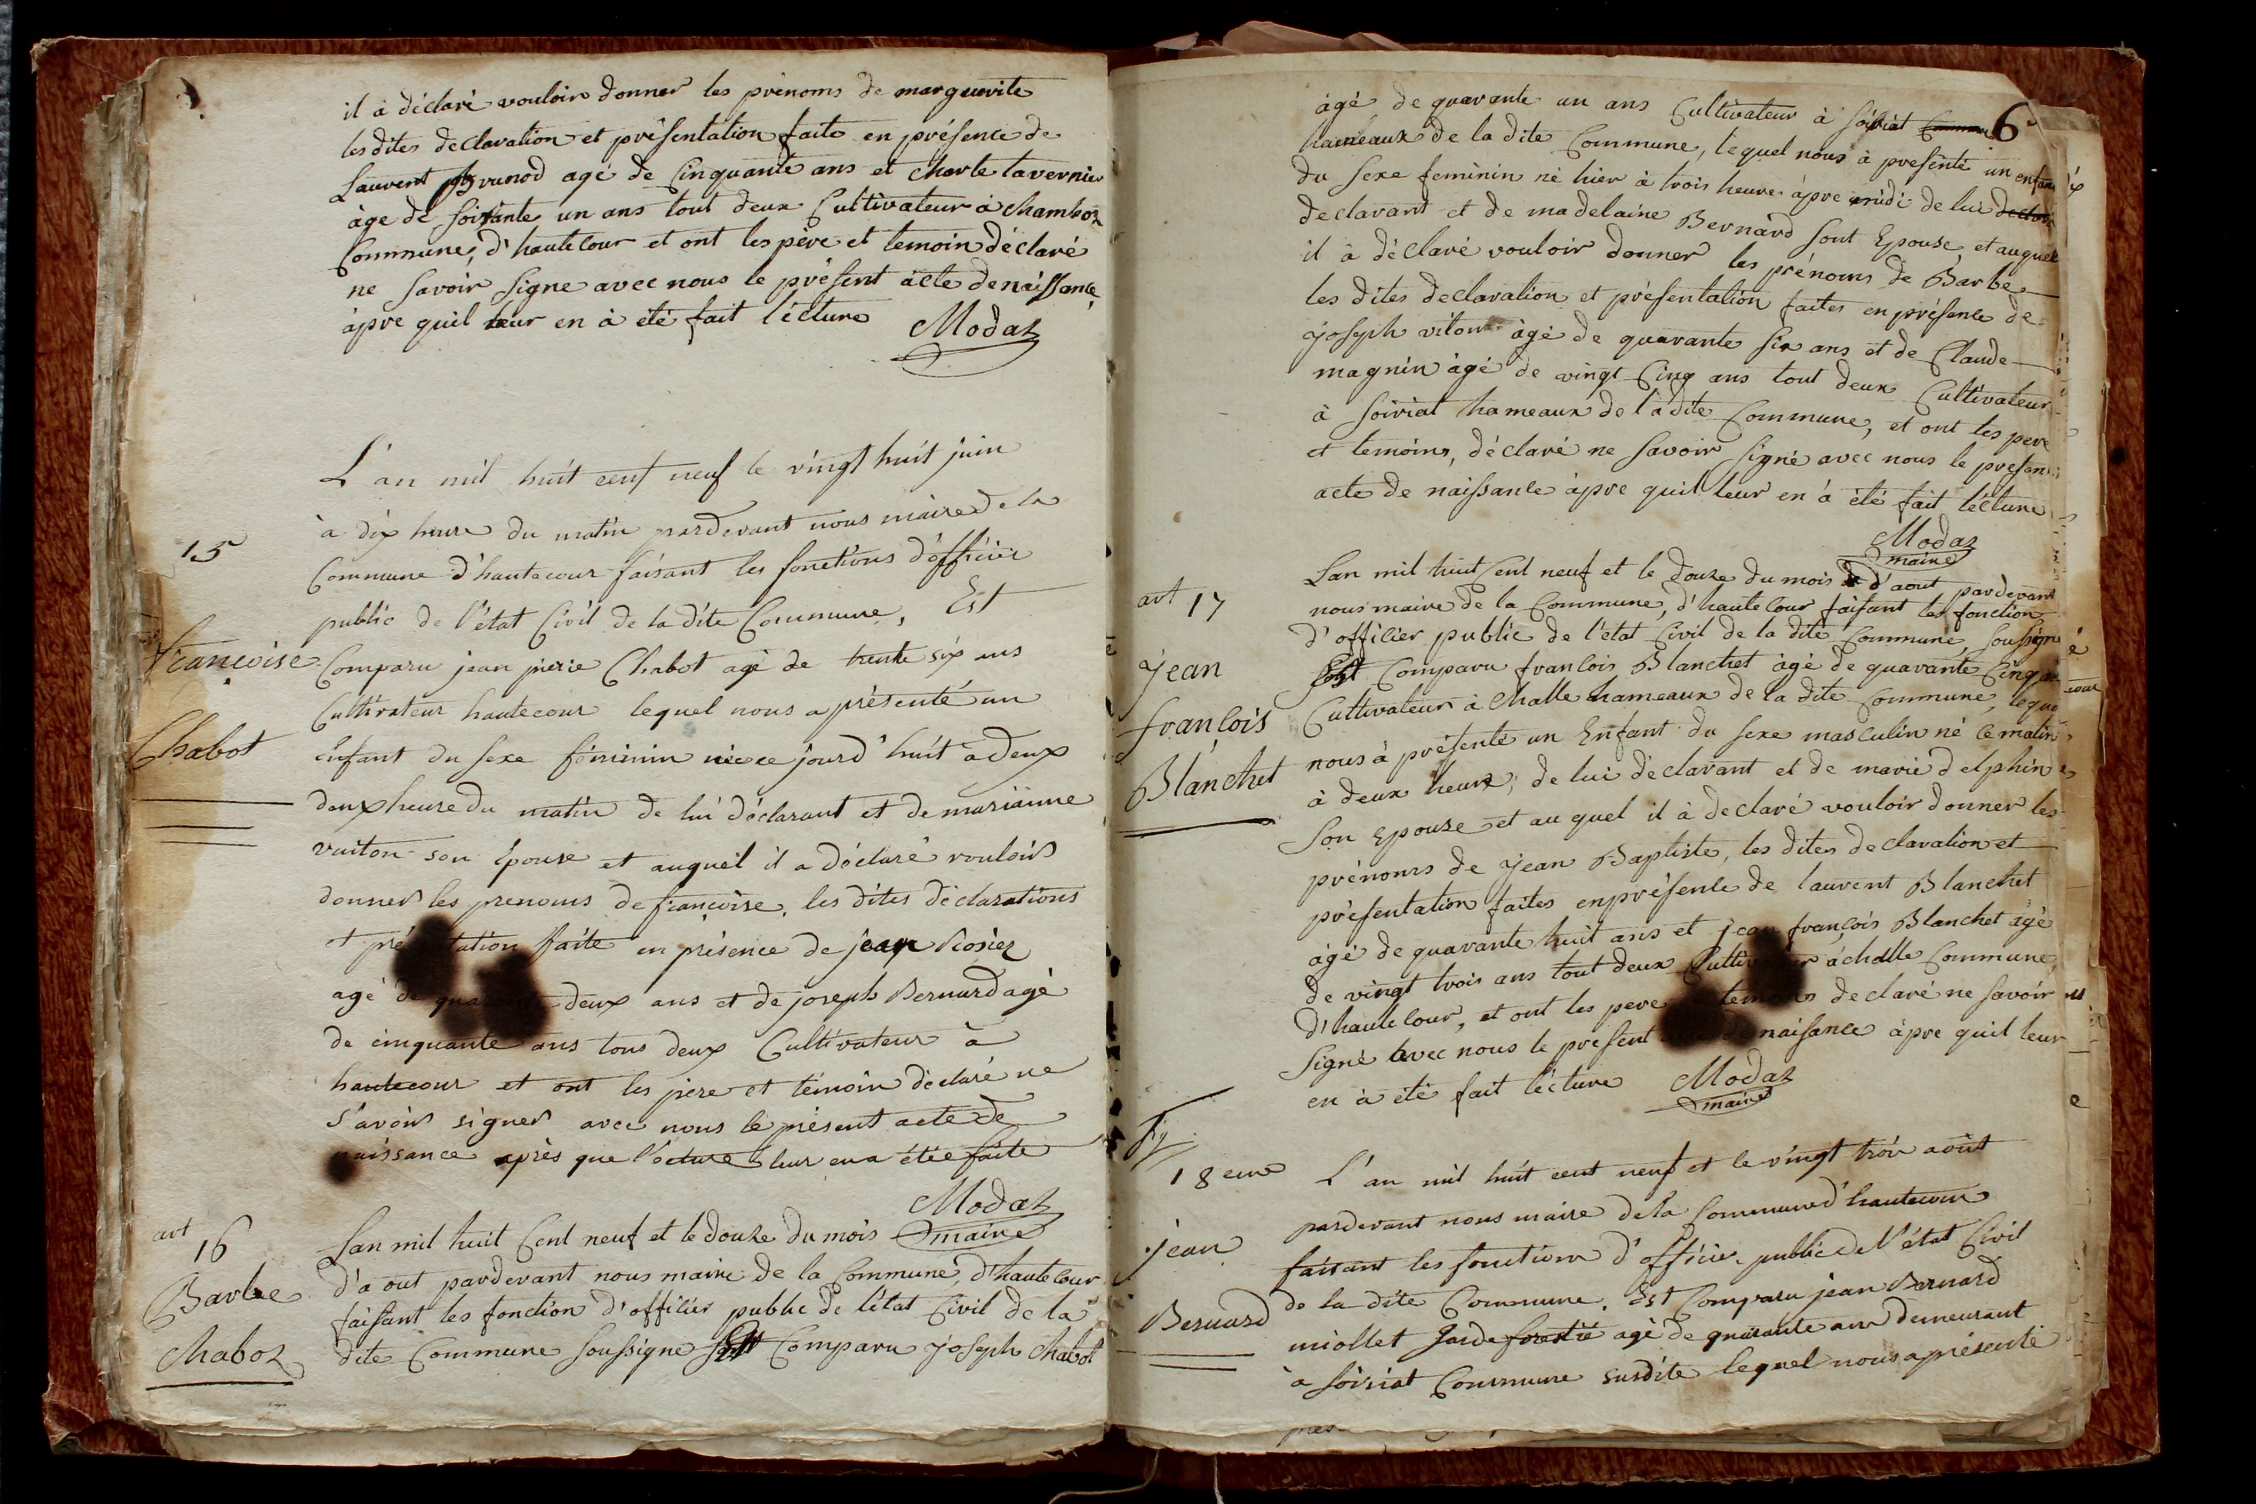 il à déclaré vouloir donner les prénoms de marguerite
les dites declaration et présentation faite en présence de
Laurent Brunod agé de Cinquante ans et charle tavernier
àge de soixante un ans tout deux Cultivateur à chamboz
Commune, d'hautecour et ont les père et temoin déclaré
ne savoir signe avec nous le présent àcte denaissance
àpre quil leur en à été fait lécture
Modaz
15
françoise
Chabot
L'an mil huit cent neuf le vingt huit juin
à dix heure du matin pardevant nous maire de la
Commune d'hautecour faisant les fonctions d'officier
public de l'état Civil de la dite Commune, Est
Comparu jean pierre Chabot agé de trente six ans
Cultivateur hautecour lequel nous a présenté un
Enfant du sexe féminin née ce jourd'huit à deux
deux heure du matin de lui déclarant et de marianne
vuiton son Epouse et auquel il a déclaré vouloir
donner les prenoms de françoise, les dites déclarations
et présentation faite en présence de jean
agé de deux ans et de joseph Bernard agé
de cinquante ans tous deux Cultivateur à
hautecour et ont les père et témoin déclaré ne
s'avoir signer avec nous le présent acte de
naissance après que l'écture leur en a étée faite
Modaz
maire
art
16
Barbe
Chaboz
Lan mil huit Cent neuf et le douze du mois
d'a out pardevant nous maire de la Commune, d'hautecour
faisant les fonction d'officier public de létat Civil de la
dite Commune soussigne Est Comparu joseph chabot
6
àgé de quarante un ans Cultivateur à soiriat Commune
hameaux de la dite Commune, lequel nous à presenté un enfant
du sexe feminin né hier à trois heure àpre midi de lui
declarant et de madelaine Bernard sont Epouse, et auquel
il à déclaré vouloir donner les prénoms de Barbe
les dites declaration et présentation faites en présence de
joseph viton àgé de quarante six ans et de Claude
magnin àgé de vingt Cinq ans tout deux Cultivateur
à soiriat hameaux de la dite Commune, et ont les pere
et temoins, déclaré ne savoir signé avec nous le present
acte de naissance àpre quil leur en à été fait lécture
Modaz
maire
art 17
jean
françois
Blanchet
Lan mil huit Cent neuf et le douze du mois d'aout pardevant
nous maire de la Commune, d'hautecour faisant les fonction
d'officier public de l'état Civil de la dite Commune, soussigné
Est Comparu françois Blanchet àgé de quarante Cinq ans
Cultivateur à Challe hameaux de la dite Commune, lequel
nous à présenté un Enfant du sexe masculin né ce matin
à deux heure, de lui declarant et de marie delphin
son epouse et au quel il à declaré vouloir donner les
prénoms de jean Baptiste, les dites declaration et
présentation faites enprésence de laurent Blanchet
àgé de quarante huit ans et jean françois Blanchet àgé
de vingt trois ans tout deux Cultivateur àchalle Commune
d'hautecour, et ont les pere et temoins declaré ne savoir
signé avec nous le present naisance àpre quil leur
en à été fait lécture
Modaz
maire
18 eme
jean
Bernard
L'an mil huit cent neuf et le vingt trois août
pardevant nous maire dela Commune d'hautecour
faisant les fonctions d'officier public de l'état Civil
de la dite Commune. Est Comparu jean Bernard
miollet Garde forestié agé de quarante ans demeurant
à soiriat Commune susdite lequel nous a présenté